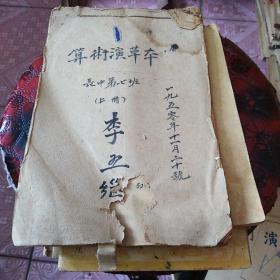 算術演草本
長中第七班
(上冊)
李五继
一九五零年十一月二十號
演